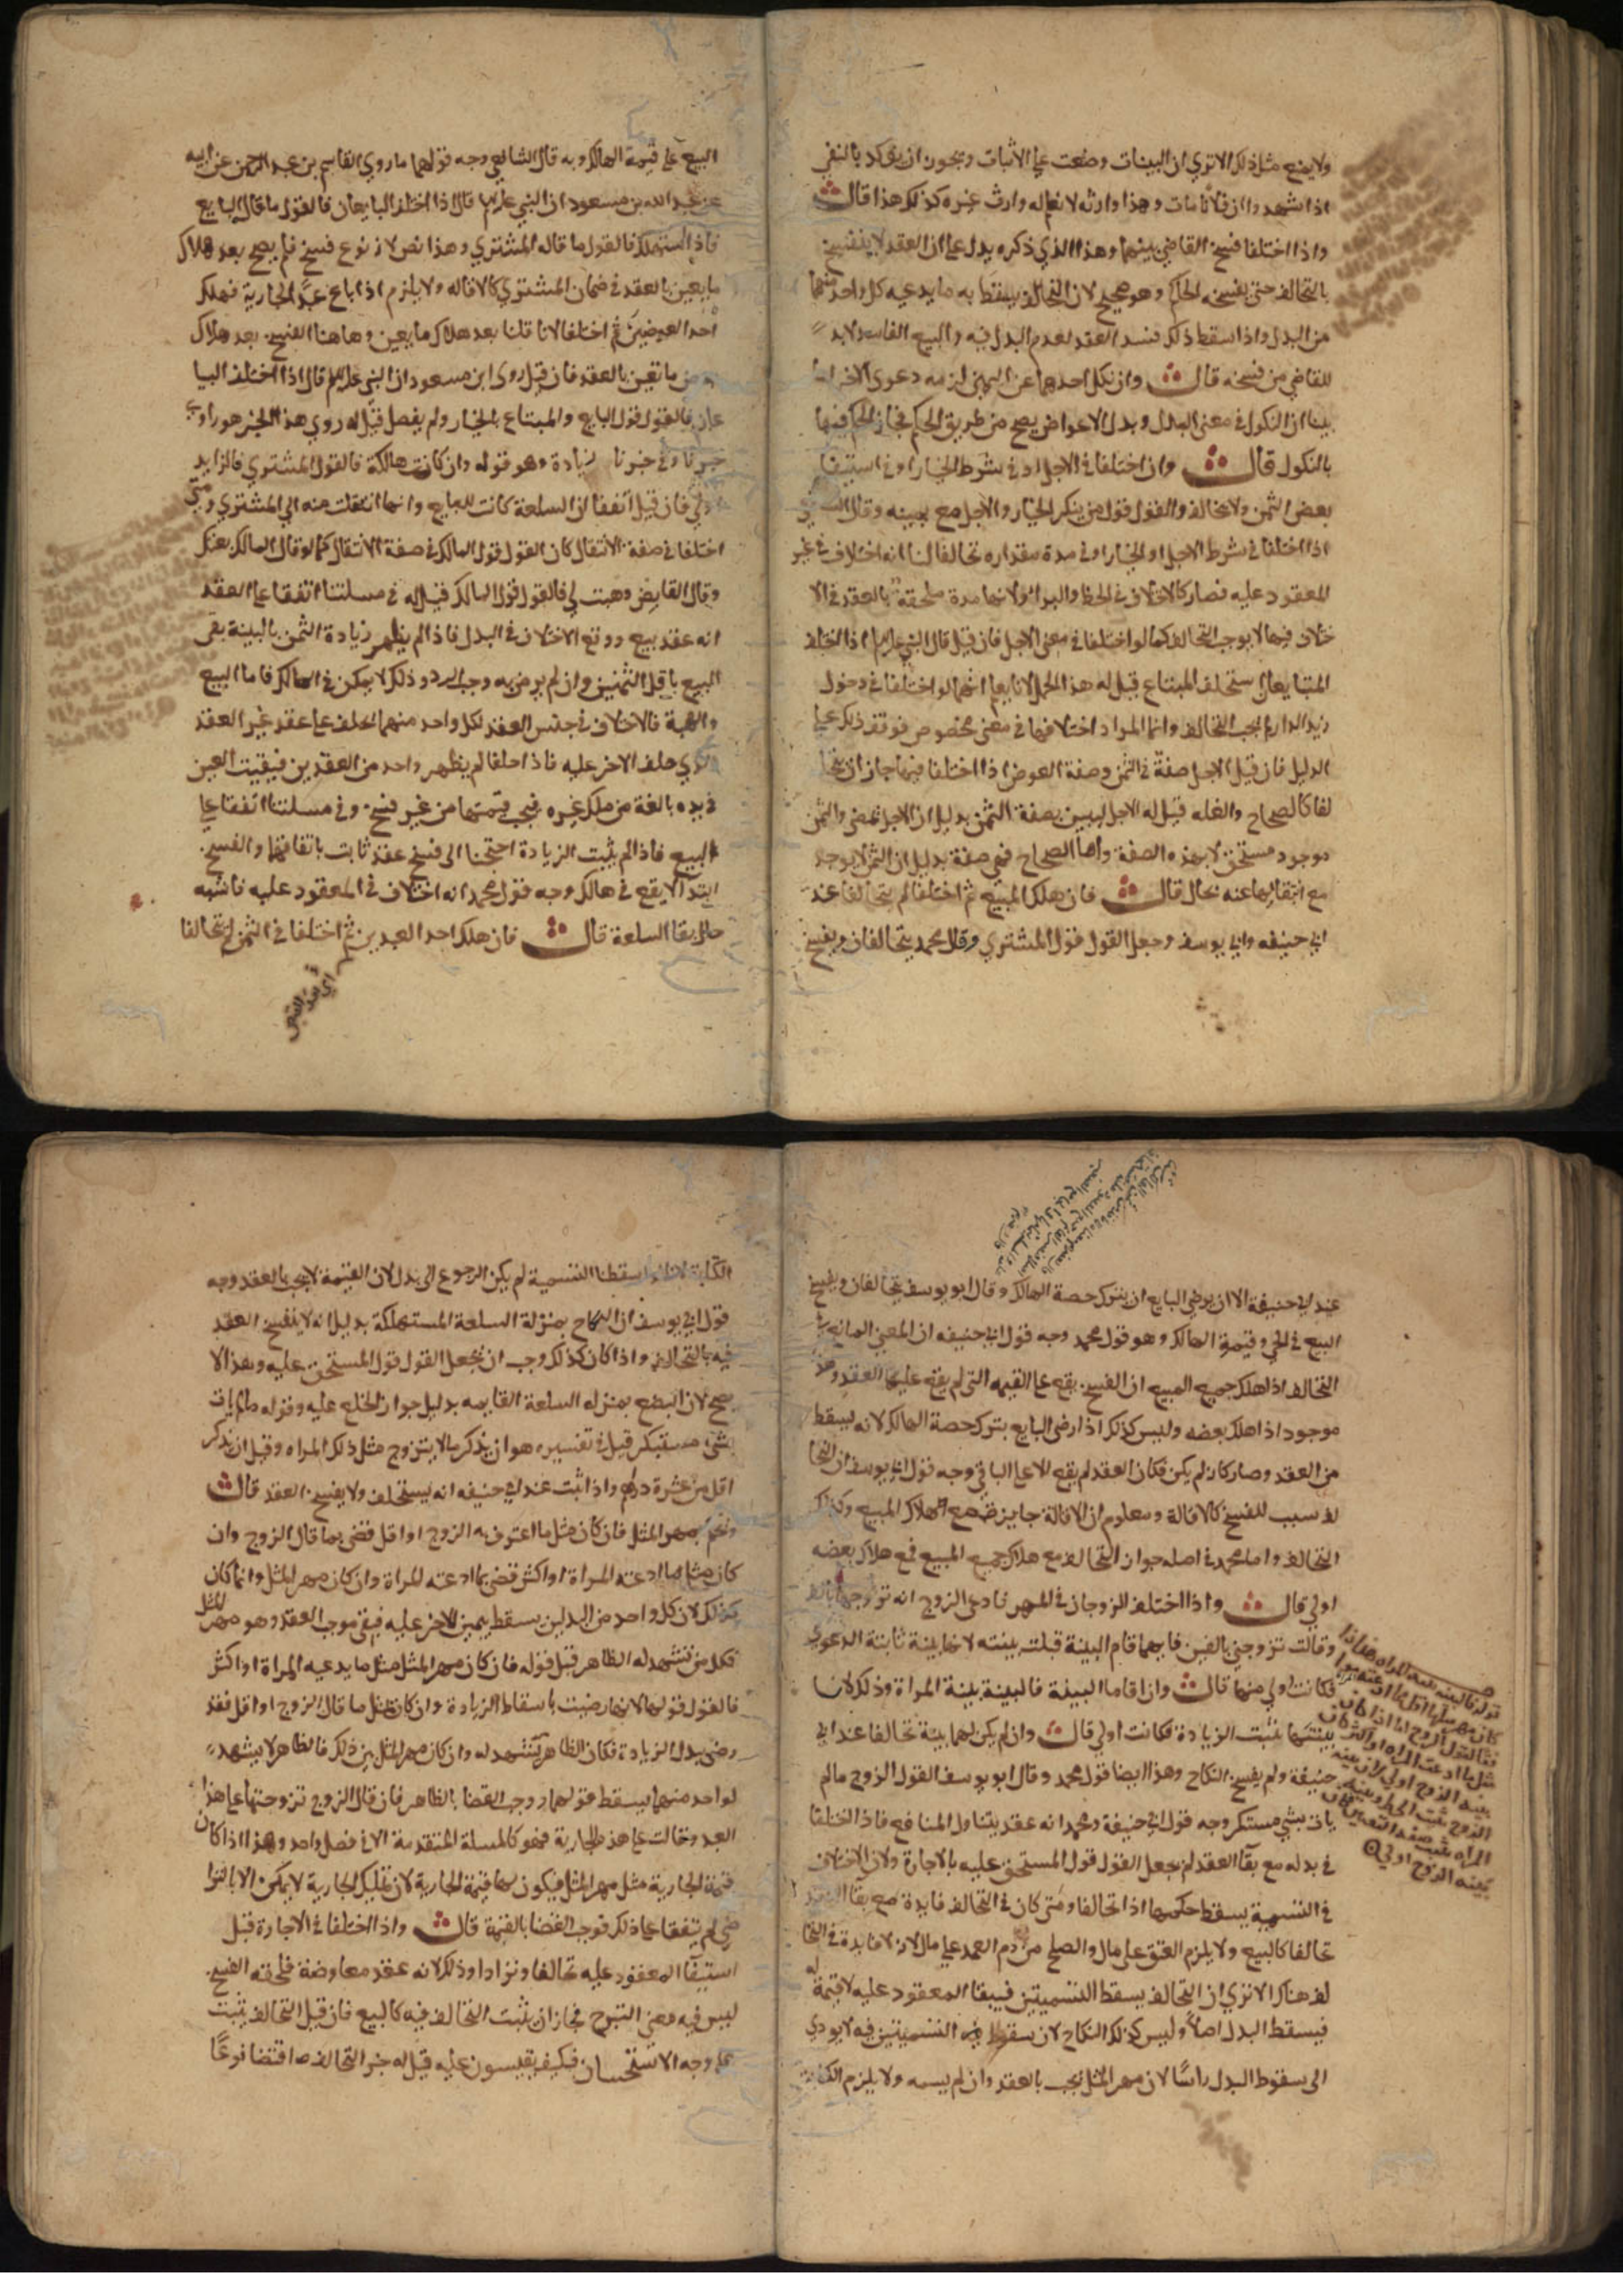 ولا يمنع مثل ذلك الا تري ان البينات وضعت علي الاثبات ويجوز ان يوكد بالنفي
اذا شهدوا ان فلانا مات وهذا وارثه لا نعلم له وارث غيره كذلك هذا قال
واذا اختلفا فسخ القاضي بينهما وهذا الذي ذكره يدل علي ان العقد لا ينفسخ
بالتحالف حتي يفسخه الحاكم وهو صحيح لان التحالف يسقط به ما يدعيه كل واحد منهما
من البدل واذا سقط ذلك فسد العقد لعدم البدل فيه والبيع الفاسد لابد
للقاضي من فسخه قال وان نكل احدهما عن اليمين لزمه دعوي الاخر لما
بينا ان النكول في معني البدل وبدل الاعواض يصح من طريق الحكم فجاز الحكم فيها
بالنكول قال وان اختلفا في الاجل او في شرط الخيار او في استيفا
بعض الثمن ولا تحالف والقول قول من ينكر الخيار والاجل مع يمينه وقال الشافعي
اذا اختلفا في شرط الاجل او الخيار او في مدة مقداره تحالفا لنا انه اختلاف في غير
المعقود عليه فصار كالاختلاف في الحط والبراء ولانها مدة ملحقة بالعقد فالا
ختلاف فيها لا يوجب التحالف كما لو اختلفا في مضي الاجل فان قيل قال النبي عليه السلام اذا اختلف
المتبايعان استحلف المبتاع قيل له هذا الخبر لانا نعلم انهما لو اختلفا في دخول
زيد الدار لم يجب التحالف وانما المراد اختلافهما في معني مخصوص فوقف ذلك علي
الدليل فان قيل الاجل صفة في الثمن وصفة العوض اذا اختلفا فيها جاز ان يتحا
لفا كالصحاح والغله قيل له الاجل ليس بصفة الثمن بدليل ان الاجل يمضي والثمن
موجود مستحق لا بهذه الصفة واما الصحاح فهي صفة بدليل ان الثمن لا يوجد
مع انتفائها عنه بحال قال فان هلك المبيع ثم اختلفا لم يتحالفا عند
ابي حنيفه وابي يوسف وجعل القول قول المشتري وقال محمد يتحالفان ويفسخ
البيع علي قيمة الهالك وبه قال الشافعي وجه قولهما ما روي القاسم بن عبد الرحمن عن ابيه
عن عبد الله بن مسعود ان النبي عليه السلام قال اذا اختلف البايعان فالقول ما قال البايع
فاذا استهلك فالقول ما قاله المشتري وهذا نص لانه نوع فسخ فلم يصح بعد هلاك
ما يعين بالعقد في ضمان المشتري كالاقاله ولا يلزم اذا باع عبدا بجارية فهلك
احد العوضين ثم اختلفا لانا قلنا بعد هلاك ما يعين وهاهنا الفسخ بعد هلاك
بعض ما تعين بالعقد فان قيل روي ابن مسعود ان النبي عليه السلام قال اذا اختلف البيا
عان فالقول قول البايع والمبتاع بالخيار ولم يفصل قيل له روي هذا الخبر هو راوي
خبرنا وفي خبرنا زيادة وهو قوله وان كانت هالكة فالقول قول المشتري فالزايد
اولي فان قيل اتفقا ان السلعة كانت للبايع وانها انتقلت منه الي المشتري ومتي
اختلفا في صفة الانتقال كان القول قول المالك في صفة الانتقال كما لو قال المالك بعتك
وقال القابض وهبت لي فالقول قول المالك قيل له في مسلتنا اتفقا علي العقد
انه عقد بيع ووقع الاختلاف في البدل فاذا لم يظهر زيادة الثمن بالبينة بقي
البيع باقل الثمنين وان لم يرض به وجب الرد وذلك لا يمكن في الهالك فاما البيع
والهبة فالاختلاف في جنس العقد لكل واحد منهما يحلف علي عقد غير العقد
الذي حلف الاخر عليه فاذا حلفا لم يظهر واحد من العقدين فبقيت العين
في يده بالغة من ملك غيره فيجب قيمتها من غير فسخ وفي مسلتنا اتفقا علي
البيع فاذا لم يثبت الزيادة احتجنا الي فسخ عقد ثابت باتفاقهما والفسخ
ابتداء لا يقع في هالك وجه قول محمد انه اختلاف في المعقود عليه فاشبه
حال بقا السلعة قال فان هلك احد العبدين ثم اختلفا في الثمن لم يتحالفا
اي بعد القبض
عند ابي حنيفة الا ان يرضي البايع ان يترك حصة الهالك وقال ابو يوسف يتحالفان ويفسخ
البيع في الحي وقيمة الهالك وهو قول محمد وجه قول ابي حنيفه ان المعني المانع من
التحالف اذا هلك جميع المبيع ان الفسخ يقع علي القيمه التي لم يقع عليها العقد وهذا
موجود اذا هلك بعضه وليس كذلك اذا رضي البايع بترك حصة الهالك لانه يسقط
من العقد وصار كان لم يكن فكان العقد لم يقع الا علي الباقي وجه قول ابي يوسف ان التحا
لف سبب للفسخ كالاقالة ومعلوم ان الاقالة جايزة مع هلاك المبيع وكذلك
التحالف واما محمد في اصله جواز التحالف مع هلاك جميع المبيع فمع هلاك بعضه
اولي قال واذا اختلف الزوجان في المهر فادعي الزوج انه تزوجها بالف
وقالت تزوجني بالفين فايهما قام البينة قبلت بينته لانها بينة ثابتة الدعوي
فكانت اولي منها قال وان اقاما البينة فالبينة بينة المراة وذلك لان
بينتها تثبت الزيادة فكانت اولي قال وان لم يكن لهما بينة تحالفا عند ابي
حنيفة ولم يفسخ النكاح وهذا ايضا قول محمد وقال ابو يوسف القول الزوج ما لم
يات بشي مستنكر وجه قول ابي حنيفة ومحمد انه عقد يتناول المنافع فاذا اختلفا
في بدله مع بقا العقد لم يجعل القول قول المستحق عليه بالاجارة ولان الاختلاف
في التسمية يسقط حكمها اذا تحالفا ومتي كان في التحالف فايدة مع بقا العقد
تحالفا كالبيع ولا يلزم العتق علي مال والصلح من دم العمد علي مال لانه لا فايدة في التحا
لف هناك الا تري ان التحالف يسقط التسميتين فيبقا المعقود عليه لا قيمة له
فيسقط البدل اصلا وليس كذلك النكاح لان سقوط التسميتين فيه لا يودي
الي سقوط البدل راسا لان مهر المثل يجب بالعقد وان لم يسمه ولا يلزم الكتابة
الكتابة لانا لو اسقطنا التسمية لم يكن الرجوع الي بدل لان القيمة لا يجب بالعقد وجه
قول ابي يوسف ان النكاح بمنزلة السلعة المستهلكة بدليل انه لا ينفسخ العقد
فيه بالتحالف واذا كان كذلك وجب ان يجعل القول قول المستحق عليه وهذا لا
يصح لان البضع بمنزله السلعة القايمه بدليل جواز الخلع عليه وقوله ما لم يات
بشيء مستنكر قيل في تفسيره هو ان يذكر ما لا يتزوج مثل ذلك المراه وقيل ان يذكر
اقل من عشرة دراهم واذا ثبت عند ابي حنيفه انه يستحلف ولا يفسخ العقد قال
وتحكم بمهر المثل فان كان مثل ما اعترف به الزوج او اقل قضي بما قال الزوج وان
كان مثل ما ادعته المراة او اكثر قضي بما ادعته المراة وان كان مهر المثل وانما كان
كذلك لان كل واحد من البدلين يسقط بيمين الاخر عليه فبقي موجب العقد وهو مهر المثل
فكل من تشهد له الظاهر قبل قوله فان كان مهر المثل مثل ما يدعيه المراة او اكثر
فالقول قولها لانها رضيت باسقاط الزيادة وان كان مثل ما قال الزوج او اقل فقد
رضي ببدل الزيادة فكان الظاهر يشهد له وان كان مهر المثل بين ذلك فالظاهر لا يشهد
لواحد منهما يسقط قولهما ووجب القضا بالظاهر فان قال الزوج تزوجتها علي هذا
العبد وقالت علي هذه الجارية فهو كالمسلة المتقدمة الا في فصل واحد وهذا اذا كان
قيمة الجارية مثل مهر المثل فيكون لها قيمة الجارية لان تمليك الجارية لا يمكن الا بالترا
ضي لم يتفقا علي ذلك فوجب القضا بالقيمة قال واذا اختلفا في الاجارة قبل
استيفا المعقود عليه تحالفا وترادا وذلك لانه عقد معاوضة فلحقه الفسخ
ليس فيه معني التبرع فجاز ان يثبت التحالف فيه كالبيع فان قيل التحالف يثبت
علي وجه الاستحسان فكيف يقيسون عليه قيل له خبر التحالف اقتضا نوعا